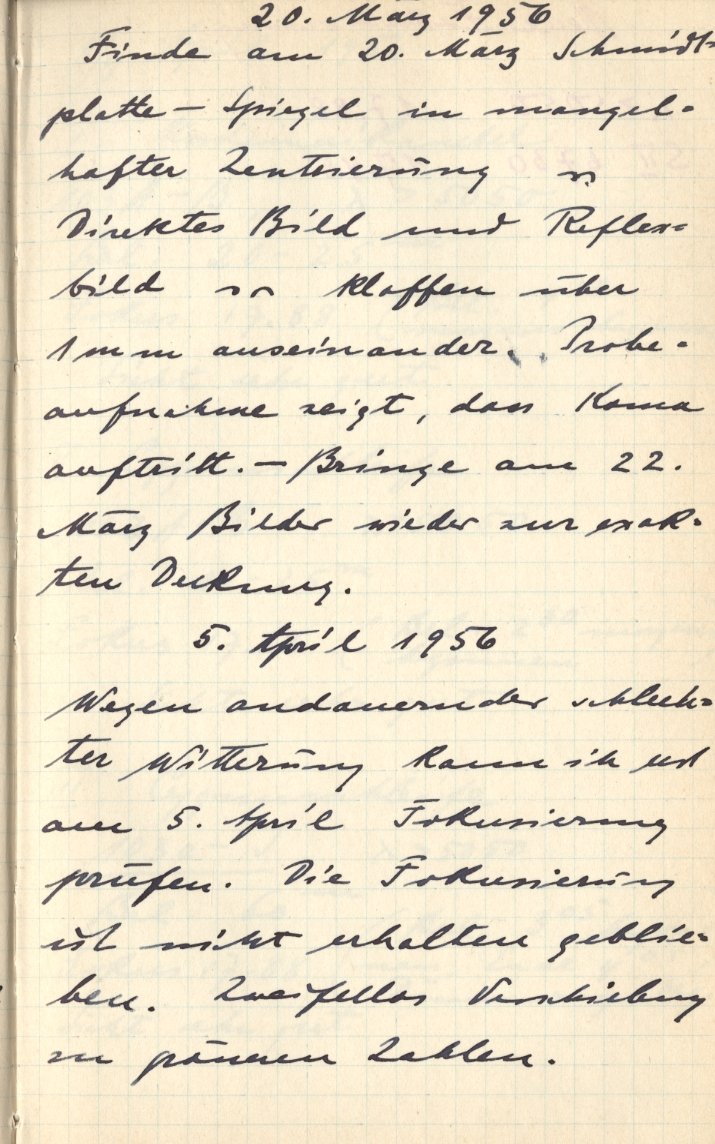 20. März 1956
Finde am 20. März Schmidt-
platte - Spiegel in mangel-
hafter Zentrierung
Direktes Bild und Reflex-
bild klaffen über
1 mm auseinander. Probe-
aufnahme zeigt, dass Koma
auftritt. - Bringe am 22.
März Bilder wieder zur exak-
ten Deckung.
5. April 1956
Wegen andauernder schlech-
ter Witterung kann ich erst
am 5. April Fokusierung
prüfen. Die Fokusierung
ist nicht erhalten geblie-
ben. Zweifellos Verschiebung
zu grösseren Zahlen.